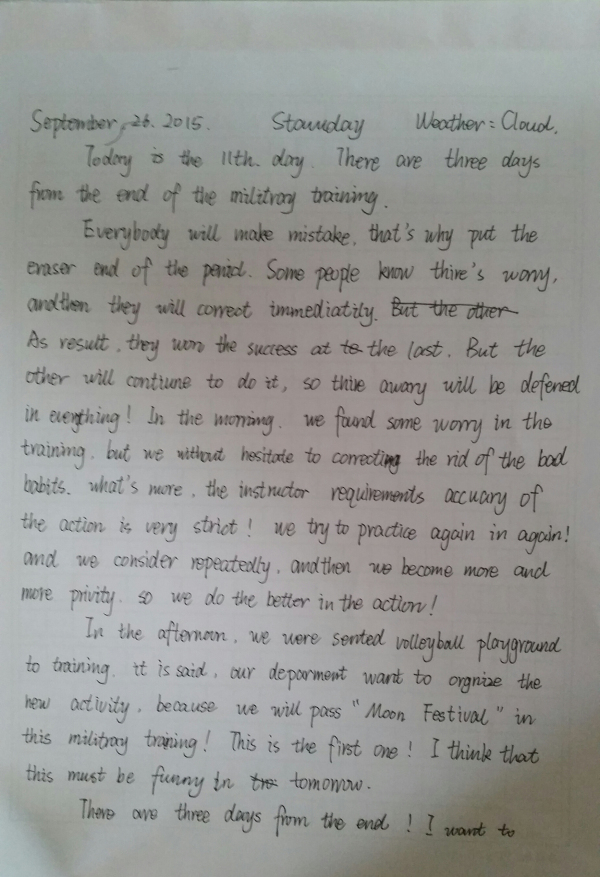 September, 26. 2015. Staurday Weather: Cloud.
Today is the 11th. day. There are three days
from the end of the militray training.
Everybody will make mistake, that's why put the
eraser end of the pencil. Some people know thire's worry,
andthen they will correct immediatily. But the other
As result, they won the success at to the last. But the
other will contiune to do it, so thire awory will be defened
in everything! In the morning, we found some worry in the
training, but we without hesitate to correcting the rid of the bad
habits. what's more, the instructor requirements accuary of
the action is very strict! we try to practice again in again!
and we consider repeatedly, andthen we become more and
more privity. so we do the better in the action!
In the afternoon, we were sented volleyball playground
to training. it is said, our deparment want to orgnize the
new activity, because we will pass "Moon Festival" in
this militray training! This is the first one! I think that
this must be funny in tomorrow.
There are three days from the end! I want to